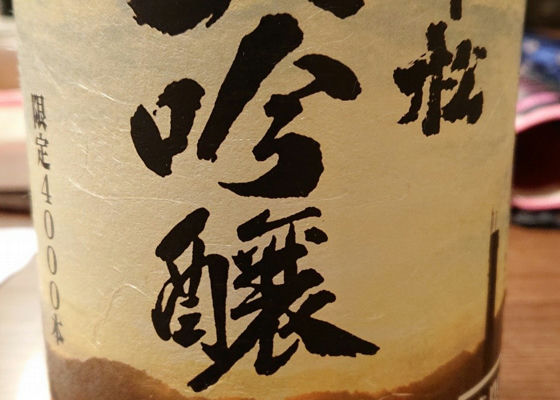 松
大吟醸
限定4000本